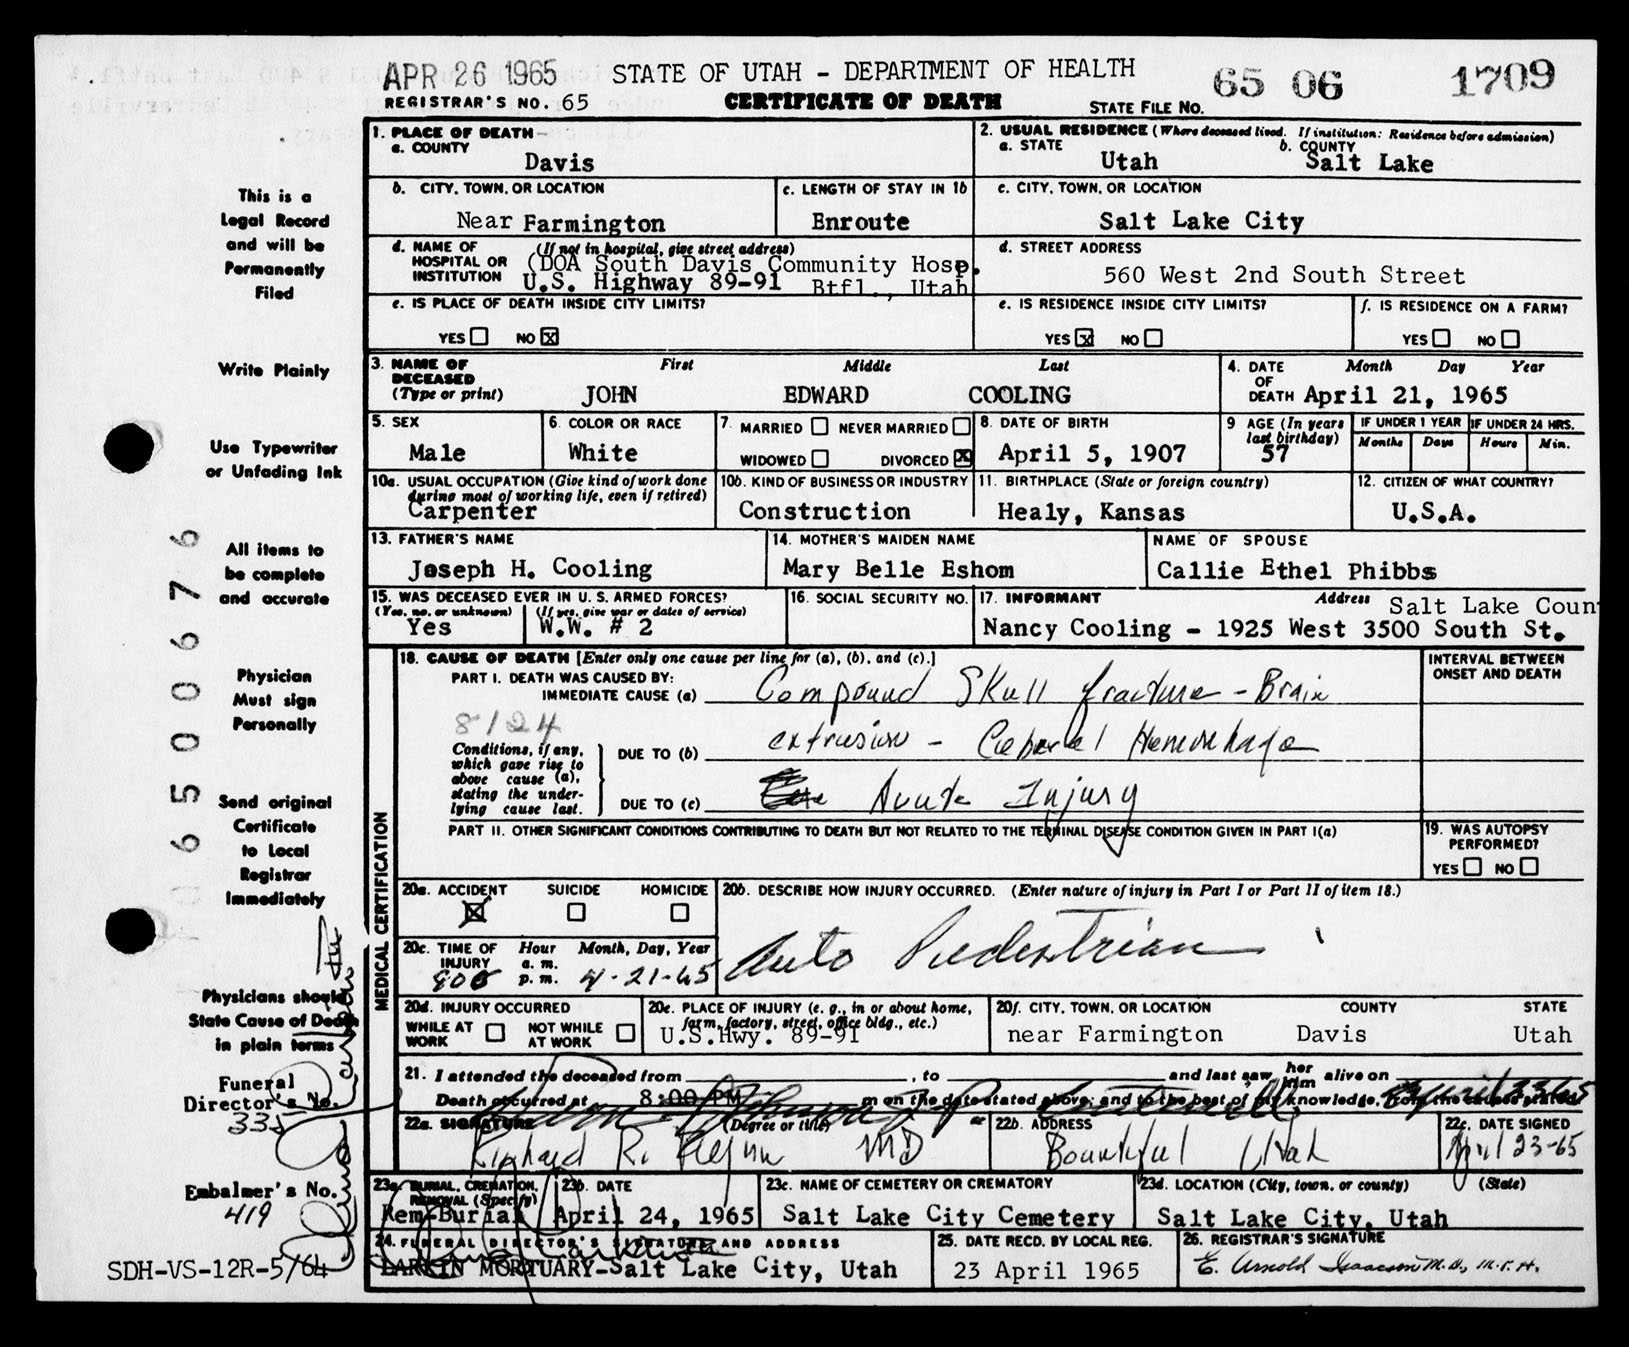 APR 26 1965 STATE OF UTAH - DEPARTMENT OF HEALTH 65 06 1709
REGISTRAR'S NO. 65 CERTIFICATE OF DEATH STATE FILE NO.
1. PLACE OF DEATH
a. COUNTY
Davis
2. USUAL RESIDENCE (Where deceased lived. If institution: Residence before admission)
a. STATE b. COUNTY
Utah Salt Lake
b. CITY, TOWN, OR LOCATION
Near Farmington
c. LENGTH OF STAY IN 1b
Enroute
c. CITY, TOWN, OR LOCATION
Salt Lake City
d. NAME OF (If not in hospital, give street address)
HOSPITAL OR (DOA South Davis Community Hosp.
INSTITUTION U.S. Highway 89-91 Btfl., Utah
d. STREET ADDRESS
560 West 2nd South Street
e. IS PLACE OF DEATH INSIDE CITY LIMITS?
YES NO X
e. IS RESIDENCE INSIDE CITY LIMITS?
YES X NO
f. IS RESIDENCE ON A FARM?
YES NO
3. NAME OF DECEASED
(Type or print)
First Middle Last
JOHN EDWARD COOLING
4. DATE OF DEATH Month Day Year
April 21, 1965
5. SEX
Male
6. COLOR OR RACE
White
7. MARRIED NEVER MARRIED
WIDOWED DIVORCED X
8. DATE OF BIRTH
April 5, 1907
9 AGE (In years last birthday)
57
IF UNDER 1 YEAR IF UNDER 24 HRS.
Months Days Hours Min.
10a. USUAL OCCUPATION (Give kind of work done
during most of working life, even if retired)
Carpenter
10b. KIND OF BUSINESS OR INDUSTRY
Construction
11. BIRTHPLACE (State or foreign country)
Healy, Kansas
12. CITIZEN OF WHAT COUNTRY?
U.S.A.
13. FATHER'S NAME
Joseph H. Cooling
14. MOTHER'S MAIDEN NAME
Mary Belle Eshom
NAME OF SPOUSE
Callie Ethel Phibbs
15. WAS DECEASED EVER IN U. S. ARMED FORCES?
(Yes, no, or unknown) (If yes, give war or dates of service)
Yes W.W. # 2
16. SOCIAL SECURITY NO.
17. INFORMANT Address Salt Lake Coun
Nancy Cooling - 1925 West 3500 South St.
MEDICAL CERTIFICATION
18. CAUSE OF DEATH [Enter only one cause per line for (a), (b), and (c).]
INTERVAL BETWEEN
ONSET AND DEATH
PART I. DEATH WAS CAUSED BY:
IMMEDIATE CAUSE (a) Compound Skull fracture - Brain
8124
Conditions, if any,
which gave rise to
above cause (a),
stating the under-
lying cause last.
DUE TO (b) extrusion - Hemorhage
DUE TO (c) Injury
PART II. OTHER SIGNIFICANT CONDITIONS CONTRIBUTING TO DEATH BUT NOT RELATED TO THE TERMINAL DISEASE CONDITION GIVEN IN PART I(a)
19. WAS AUTOPSY
PERFORMED?
YES NO
20a. ACCIDENT SUICIDE HOMICIDE
X
20b. DESCRIBE HOW INJURY OCCURRED. (Enter nature of injury in Part I or Part II of item 18.)
Auto Pedestrian
20c. TIME OF INJURY Hour Month, Day, Year
a. m.
800 p. m. 4-21-65
20d. INJURY OCCURRED
WHILE AT WORK NOT WHILE AT WORK
20e. PLACE OF INJURY (e. g., in or about home,
farm, factory, street, office bldg., etc.)
U.S.Hwy. 89-91
20f. CITY, TOWN, OR LOCATION COUNTY STATE
near Farmington Davis Utah
21. I attended the deceased from , to and last saw her him alive on
Death occurred at 8:00 PM m on the date stated above; and to the best of my knowledge, from the causes stated
22a. SIGNATURE (Degree or title)
Richard R. MD
22b. ADDRESS
Bountiful Utah
22c. DATE SIGNED
April 23-65
23a. BURIAL, CREMATION,
REMOVAL (Specify)
Rem-Burial
23b. DATE
April 24, 1965
23c. NAME OF CEMETERY OR CREMATORY
Salt Lake City Cemetery
23d. LOCATION (City, town, or county) (State)
Salt Lake City, Utah
24. FUNERAL DIRECTOR'S SIGNATURE AND ADDRESS
LARKIN MORTUARY-Salt Lake City, Utah
25. DATE RECD. BY LOCAL REG.
23 April 1965
26. REGISTRAR'S SIGNATURE
E. Arnold Isaacson M.D., M.P.H.
This is a
Legal Record
and will be
Permanently
Filed
Write Plainly
Use Typewriter
or Unfading Ink
All items to
be complete
and accurate
Physician
Must sign
Personally
Send original
Certificate
to Local
Registrar
Immediately
Physicians should
State Cause of Death
in plain terms
Funeral
Director's No.
335
Embalmer's No.
419
SDH-VS-12R-5/64
06500676